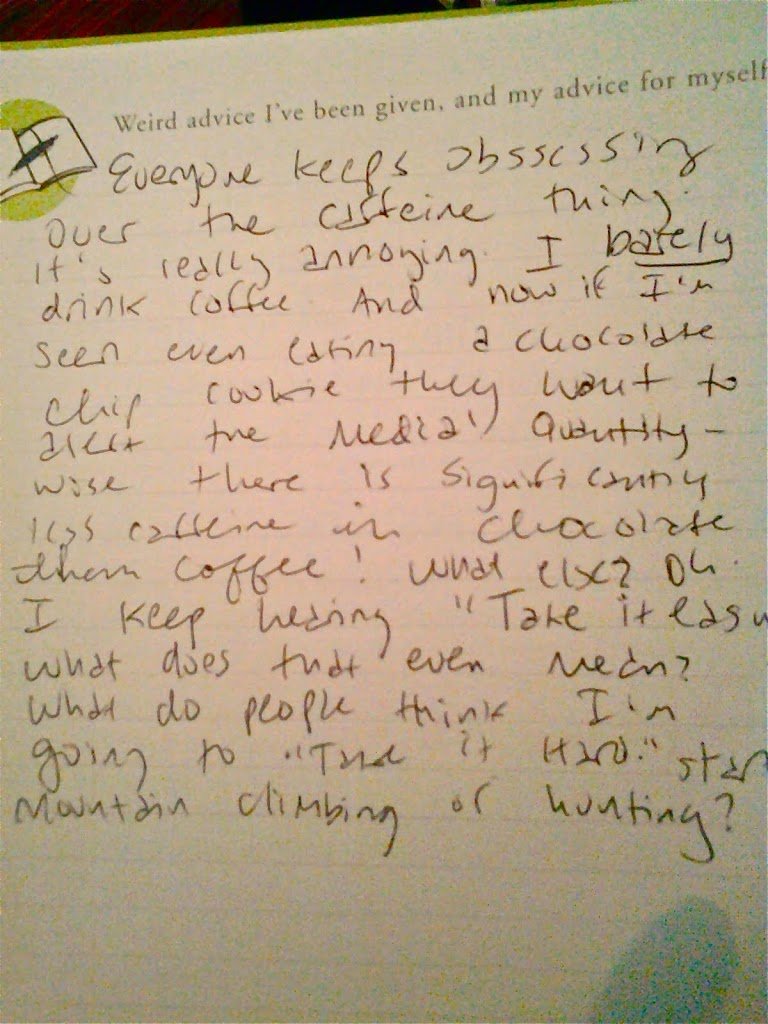 Weird advice I've been given, and my advice for myself
Everyone keeps obsessing
over the caffeine thing.
It's really annoying. I barely
drink coffee And now if I'm
seen even eating a chocolate
chip cookie they want to
alert the Media! Quantity-
wise there is significantly
less caffeine in chocolate
than coffee! What else? Oh.
I keep hearing "Take it easy
what does that even mean?
What do people think I'm
going to "Take it Hard." start
Mountain climbing or hunting?